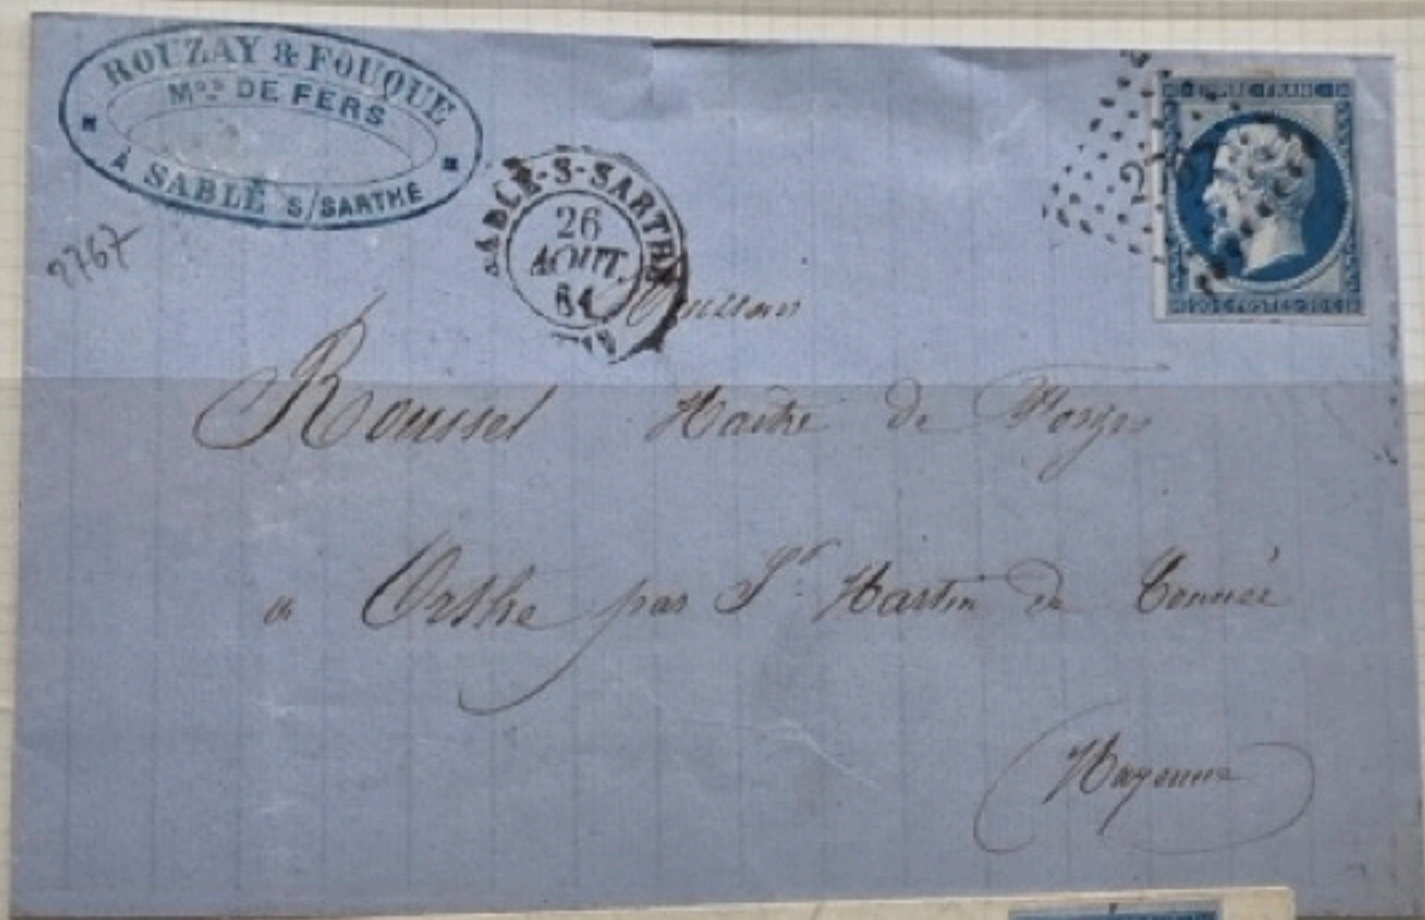 ROUZAY & FOUQUE
Mds DE FERS
À SABLÉ S/SARTHE
2767
SABLÉ-S-SARTHE
26
AOUT
61
EMPIRE FRANC
20 C POSTES 20 C
Monsieur
Roussel Maître de Forges
à Orthe par St Martin de Connée
Mayenne